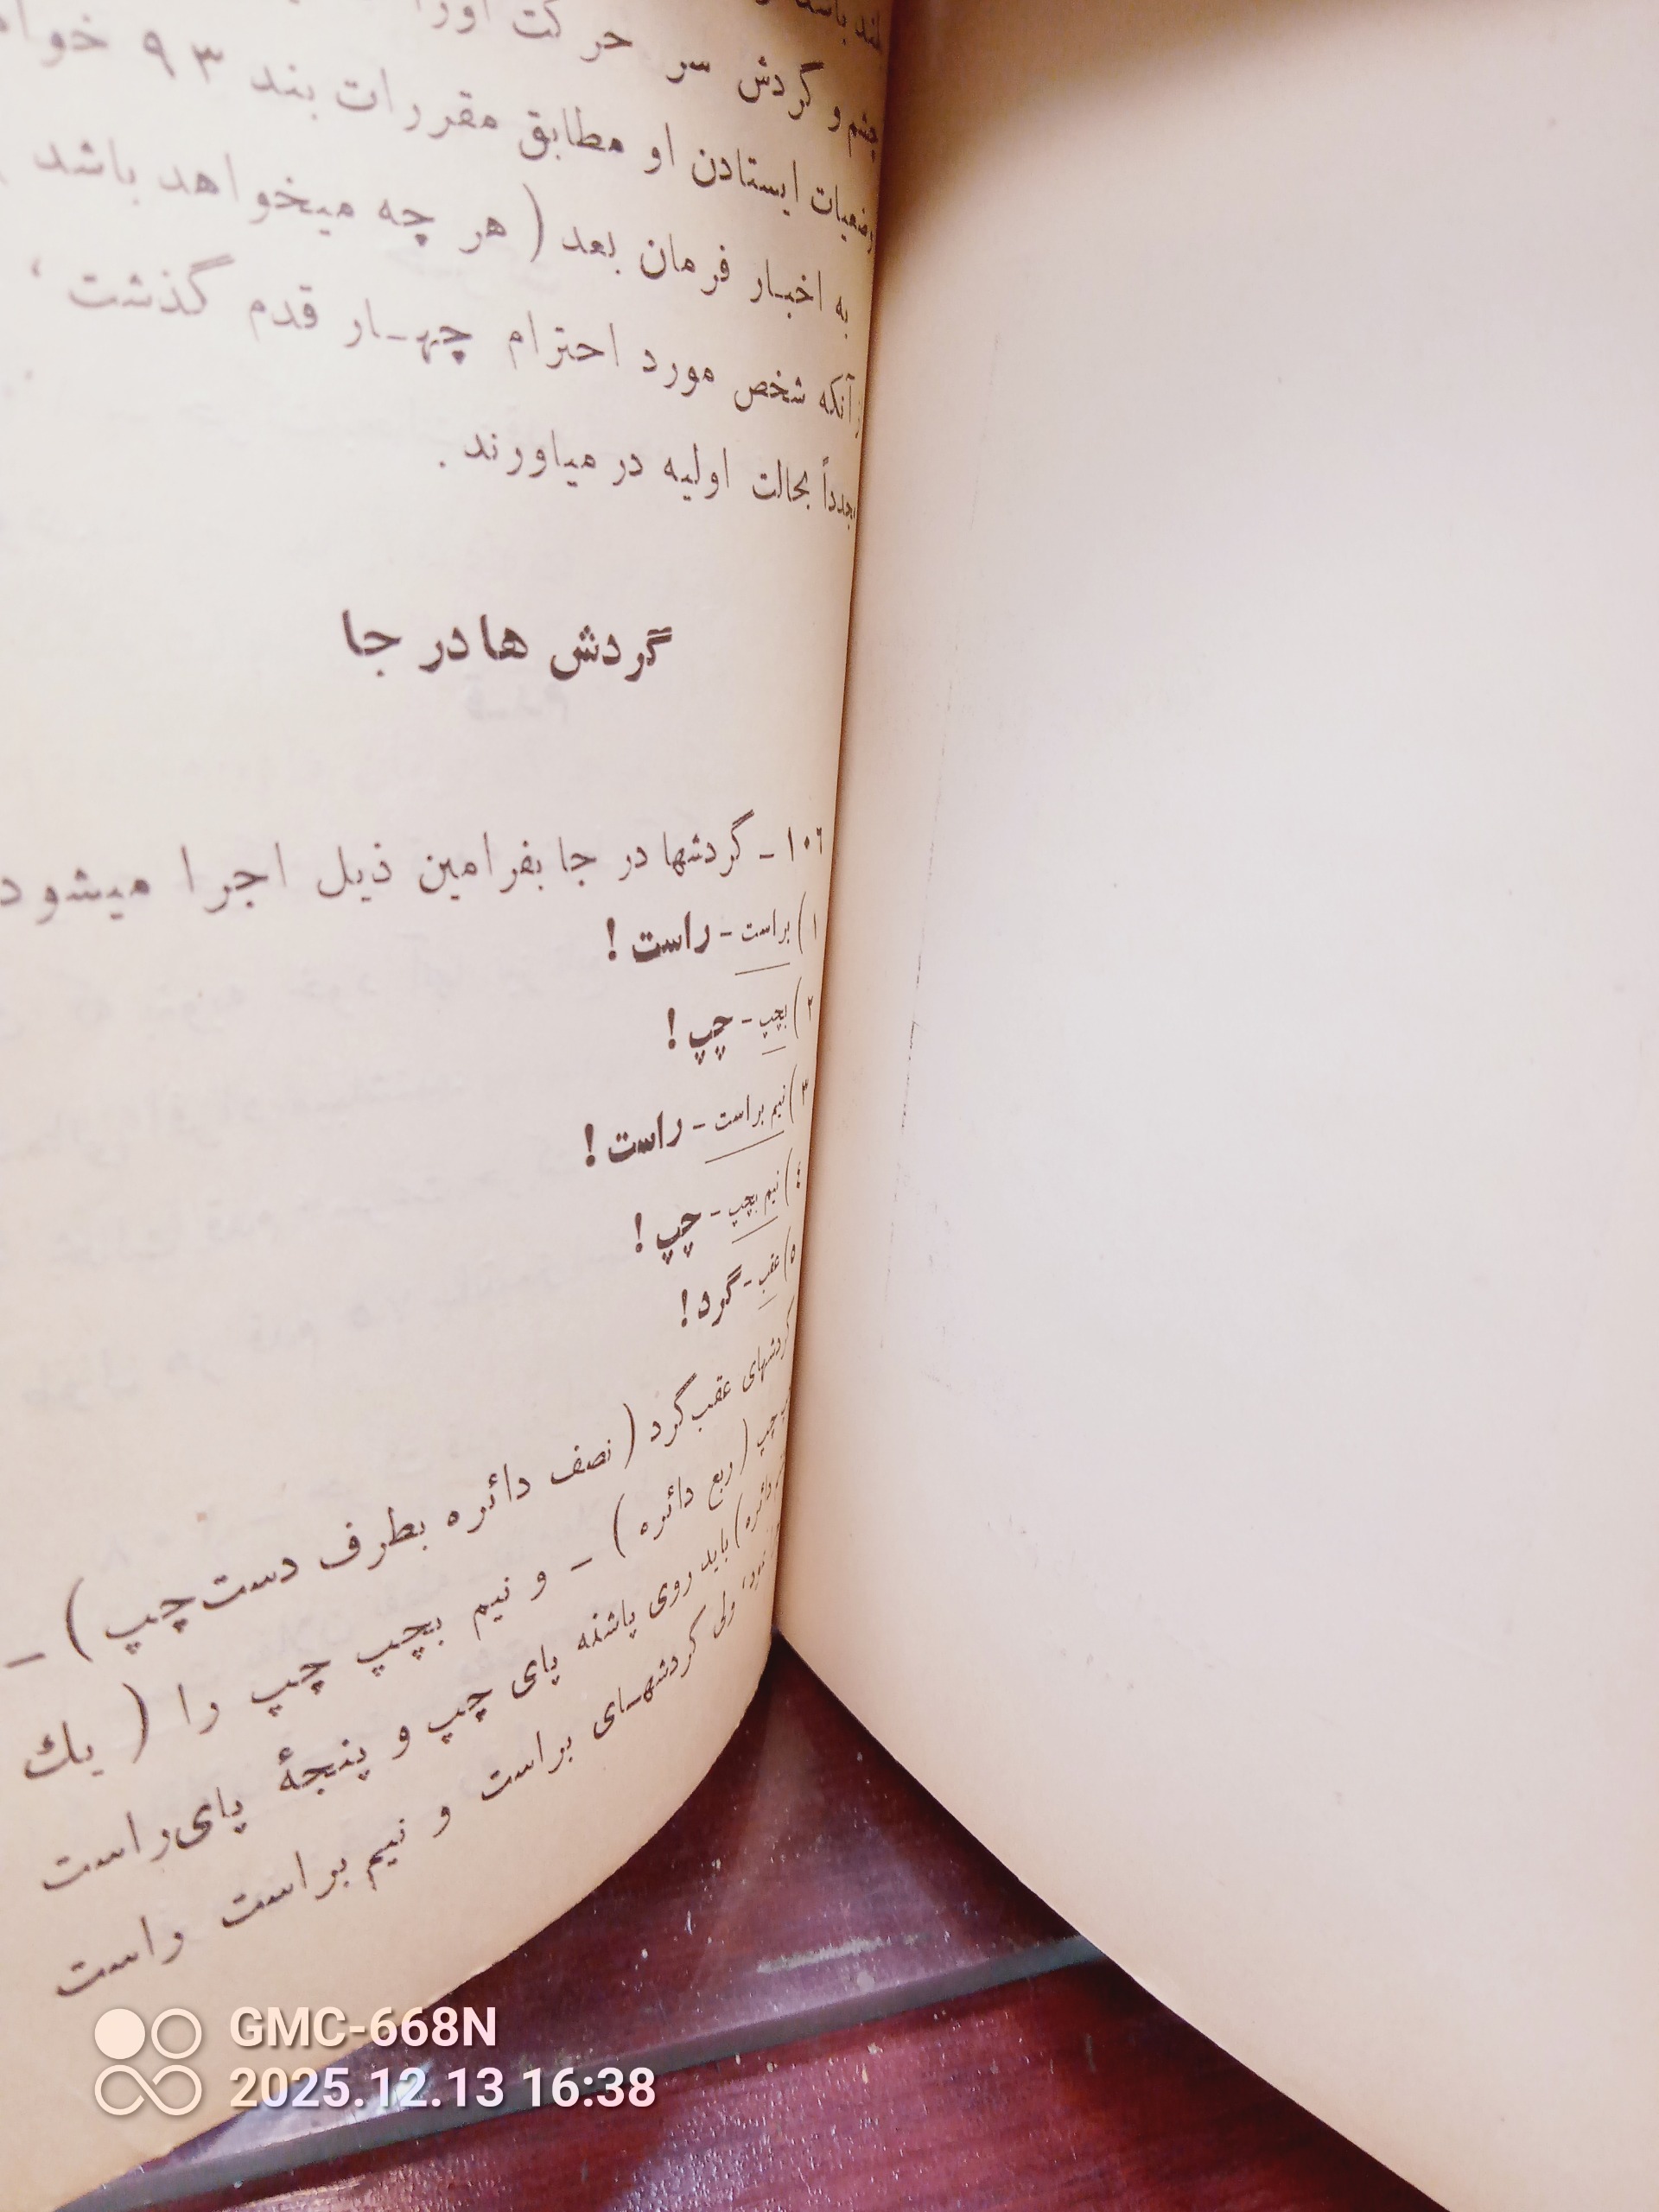 بلند باشد
چشم و گردش سر حرکت اورا
وضعیات ایستادن او مطابق مقررات بند ۹۳
به اخبار فرمان بعد ( هر چه میخواهد باشد
آنکه شخص مورد احترام چهـار قدم گذشت ،
مجدداً بحالت اولیه در میاورند .
گردش ها در جا
۱۰۶ ـ گردشها در جا بفرامین ذیل اجرا میشود
۱) براست - راست !
۲) بچپ - چپ !
۳) نیم براست - راست !
٤) نیم بچپ - چپ !
۵) عقب - گرد !
گردشهای عقب گرد ( نصف دائره بطرف دست چپ ) ـ
چپ ( ربع دائره ) ـ و نیم بچپ چپ را ( یك
دائره ) باید روی پاشنه پای چپ و پنجهٔ پای راست
نمود، ولی گردشهـای براست و نیم براست راست
GMC-668N
2025.12.13 16:38